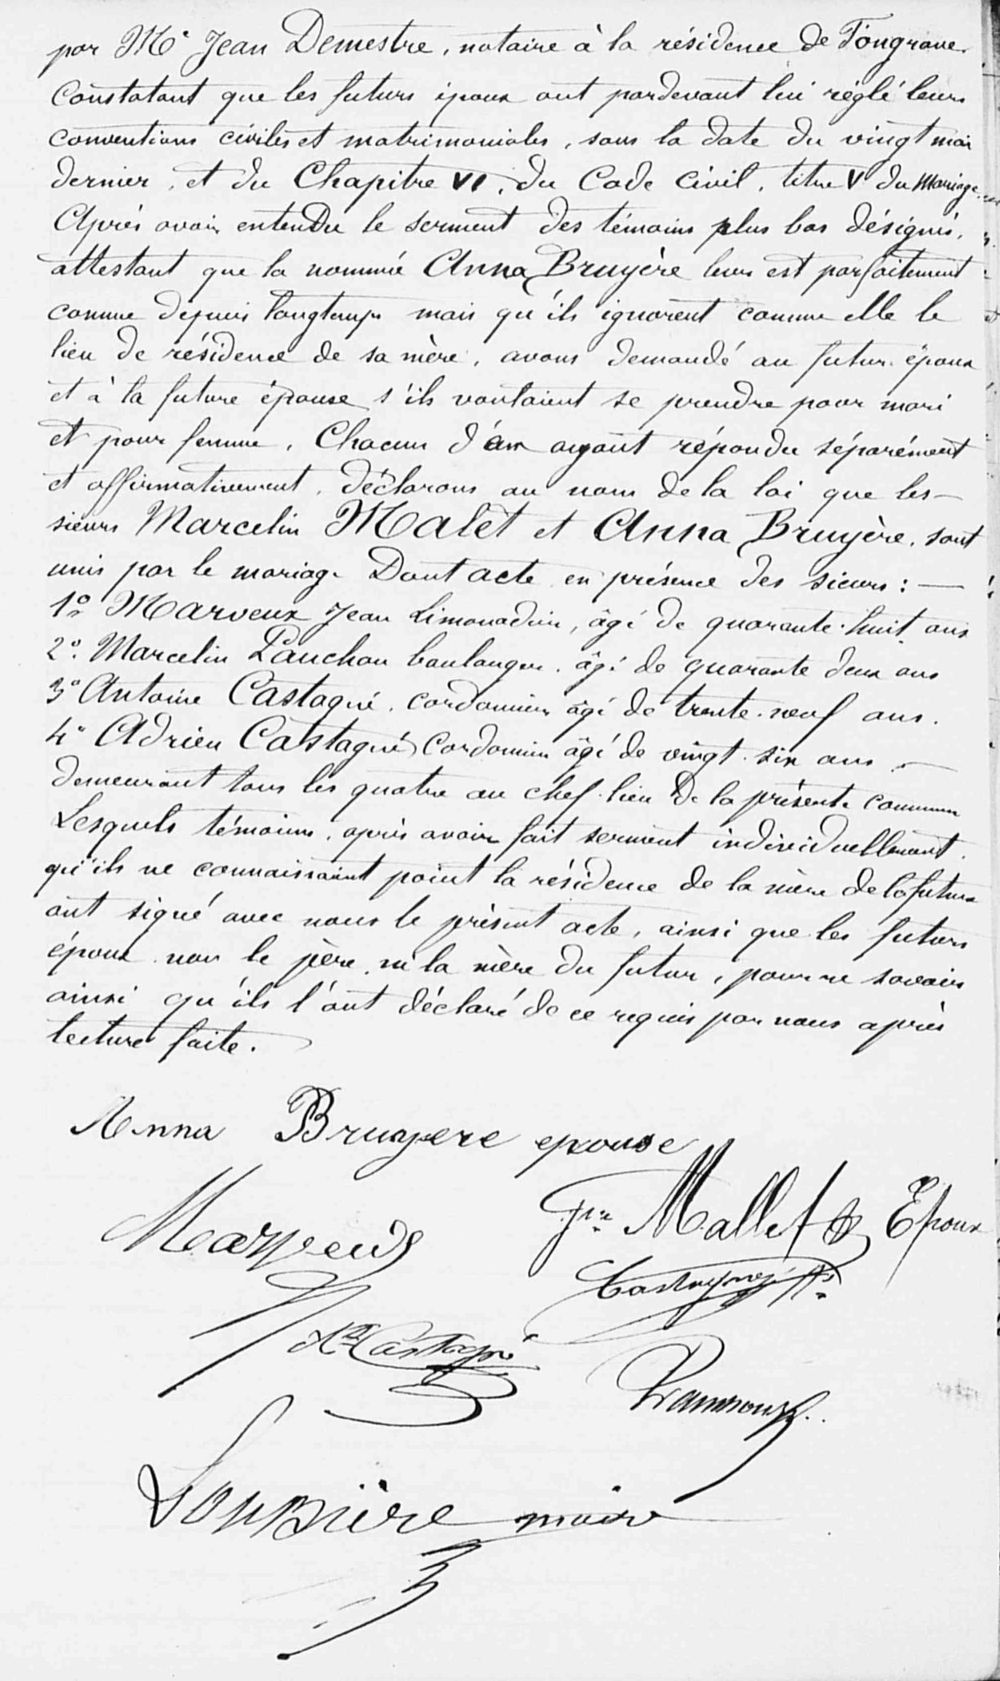 par Me Jean Demestre, notaire à la résidence de Fongrave.
Constatant que les futurs époux ont pardevant lui réglé leurs
conventions civiles et matrimoniales, sous la date du vingt mai
dernier, et du Chapitre VI, du Code civil, titre V du Mariage.
Après avoir entendu le serment des témoins plus bas désignés,
attestant que la nommée Anna Bruyère leur est parfaitement
connue depuis longtemps mais qu'ils ignorent comme elle le
lieu de résidence de sa mère, avons demandé au futur époux
et à la future épouse s'ils voulaient se prendre pour mari
et pour femme, Chacun d'eux ayant répondu séparément
et affirmativement, déclarons au nom de la loi que les –
sieurs Marcelin Malet et Anna Bruyère, sont
unis par le mariage Dont acte en présence des sieurs : —
1o Marveux Jean Limonadier, âgé de quarante-huit ans
2o. Marcelin Pauchou boulanger, âgé de quarante deux ans
3o Antoine Castagné, cordonnier âgé de trente-neuf ans.
4o Adrien Castagné, Cordonnier âgé de vingt-six ans —
demeurant tous les quatre au chef-lieu de la présente commune
Lesquels témoins, après avoir fait serment individuellement
qu'ils ne connaissaient point la résidence de la mère de la future
ont signé avec nous le présent acte, ainsi que les futurs
époux non le père, ni la mère du futur, pour ne savoir
ainsi qu'ils l'ont déclaré de ce requis par nous après
lecture faite.
Anna Bruyere epouse
Marveux
Mallet Epoux
Castagné
Castagné
maire